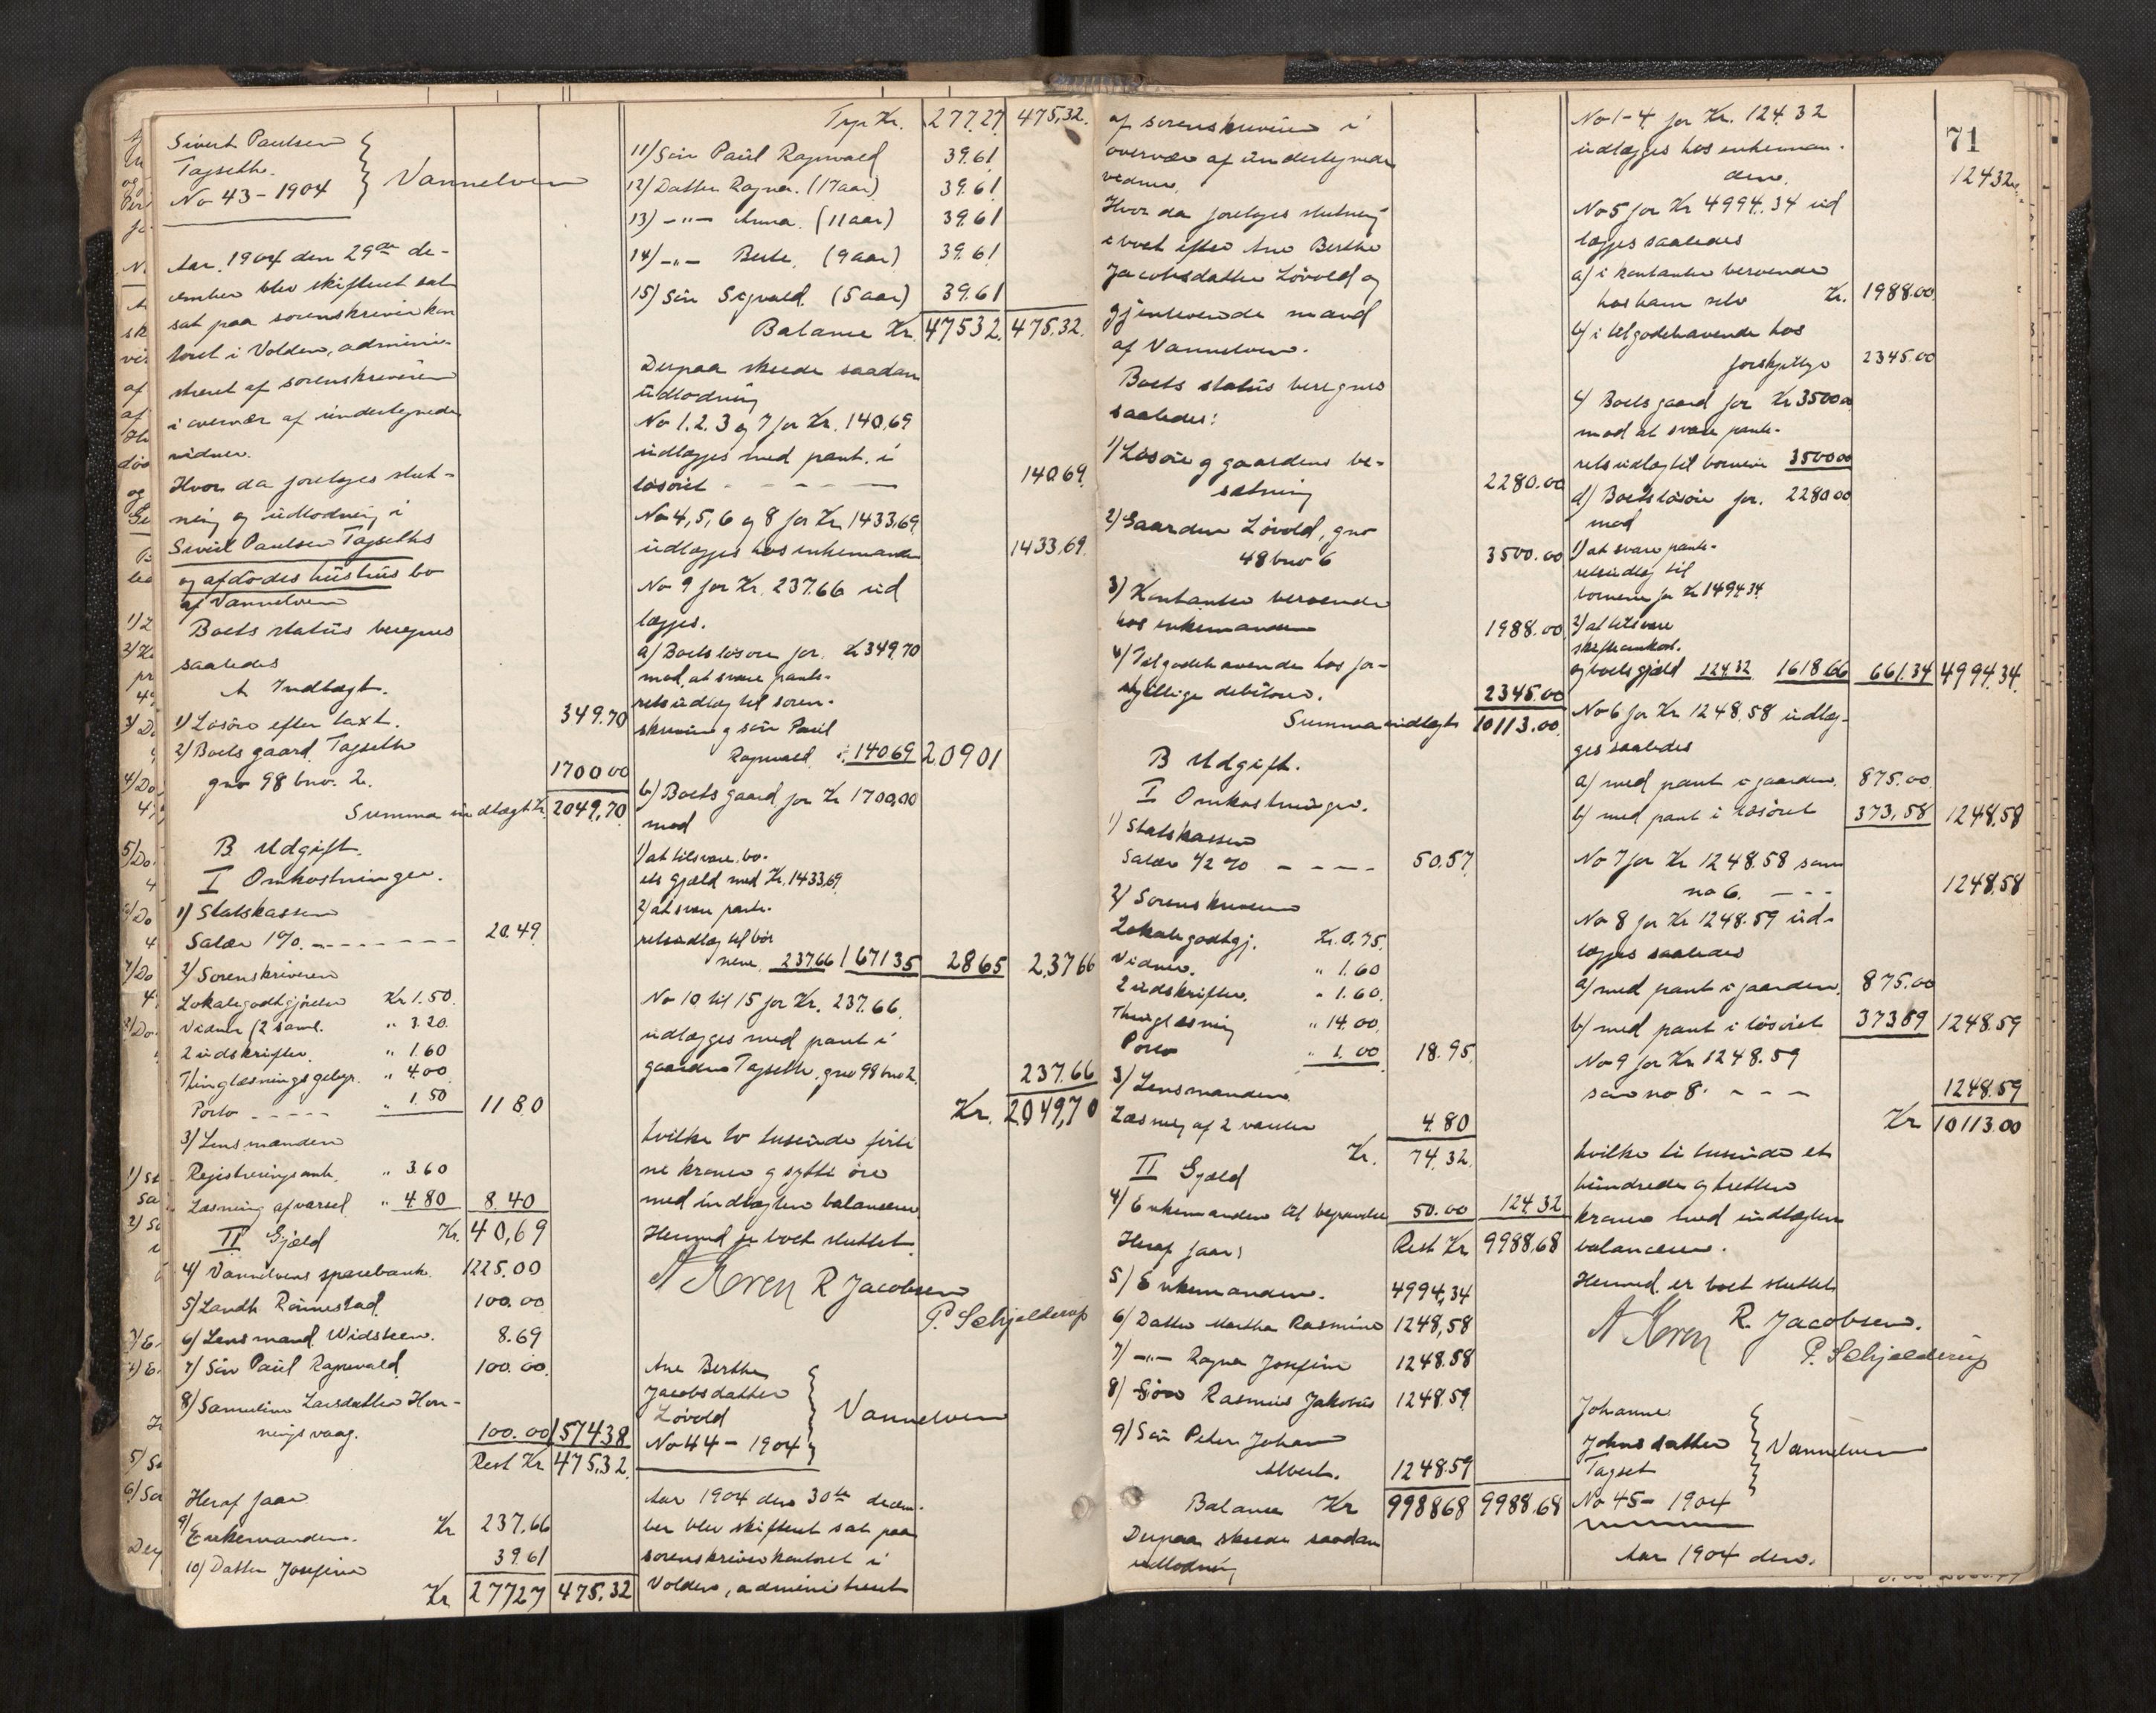 Sivert Paulsen
Tagseth.
No 43 - 1904
Vannelven
Aar 1904 den 29de de-
cember blev skifteret sat
sat paa sorenskriverkon
toret i Volden, admini-
streret af sorenskriveren
i overvær af undertegnede
vidner.
Hvor da foretoges slut-
ning og udlodning i
Sivert Paulsen Tagseths
og afdødes hustrus bo
af Vannelven
Boets status beregnes
saaledes
A Indtægt.
1) Løsøre efter taxt. 349.70
2) Boets gaard Tagseth
gno 98 bno. 2. 1700 00
Summa indtægt Kr. 2049,70
B Udgift.
I Omkostninger.
1) Statskassen
Salær 1%. - - - - - - - 20.49
2) Sorenskriveren
Lokalegodtgjørelse Kr 1.50.
Vidner (2 saml. " 3.20.
2 udskrifter. " 1.60
Thinglæsningsgebyr. " 4.00
Porto - - - - - " 1.50 11 80
3) Lensmanden
Registreringsomk. " 3.60
Læsning af varsel " 4.80 8.40
II Gjæld Kr. 40,69
4) Vannelvens sparebank. 1225.00
5) Landh. Rönnestad. 100.00
6) Lensmand Widsteen. 8.69
7) Sön Paul Ragnvald 100.00.
8) Samuline Larsdatter Hon-
ningsvaag. 100.00 1574.38
Rest Kr 475.32.
Heraf faar
9) Enkemanden. Kr 237.66
10) Datter Josefine 39.61
Kr 277.27 475.32
Trp Kr. 277.27. 475,32.
11) Sön Paul Ragnvald 39.61
12) Datter Ragna. (17 aar) 39.61
13) -"- Anna. (11 aar) 39.61
14) -"- Berte. (9 aar) 39.61
15) Sön Sigvald. (5 aar) 39.61
Balance Kr. 475 32. 475.32.
Derpaa skeede saadan
udlodning
No 1. 2. 3 og 7 for Kr. 140.69
udlægges med pant i
løsöret - - - - - 140 69.
No 4, 5, 6 og 8 for Kr 1433,69
udlægges hos enkemanden 1433.69.
No 9 for Kr. 237.66 ud
lægges.
a) Boets løsøre for. Kr 349.70
mod at svare pante-
retsudlæg til soren-
skriveren og sön Paul
Ragnvald 140 69 209 01
b) Boets gaard for Kr 1700,00
mod
1) at tilsvare bo-
ets gjæld med Kr. 1433,69.
2) at svare pante-
retsudlæg til bör
nene 237 66 1671 35 28 65 237 66
No 10 til 15 for Kr. 237.66.
udlægges med pant i
gaarden Tagseth. gno 98 bno 2. 237.66
Kr. 2049,70
hvilke to tusinde firti
ni kroner og sytti øre
med indtægten balancerer
Hermed er boet sluttet.
R Jacobsen
P. Schjelderup
Ane Berthe
Jacobsdatter
Løvold
No 44 - 1904
Vannelven
Aar 1904 den 30te decem-
ber blev skifteret sat paa
sorenskriverkontoret i
Volden, administreret
af sorenskriveren i
overvær af undertegnede
vidner.
Hvor da foretoges slutning
i boet efter Ane Berthe
Jacobsdatter Løvold og
gjenlevende mand
af Vannelven.
Boets status beregnes
saaledes:
1) Løsøre og gaardens be-
sætning 2280.00
2) Gaarden Løvold, gno
48 bno 6 3500.00
3) Kontanter beroende
hos enkemanden 1988.00
4) Tilgodehavende hos for-
skjellige debitorer. 2345.00
Summa indtægt 10113.00.
B Udgift.
I Omkostninger.
1) Statskassen
Salær 1/2 % - - - - 50.57
2) Sorenskriveren
Lokalegodtgj. Kr. 0.75.
Vidner. " 1.60
2 udskrifter. " 1.60.
Thinglæsning " 14.00.
Porto " 1.00 18.95.
3) Lensmanden
Læsning af 2 varsler 4.80
Kr. 74.32.
II Gjæld
4) Enkemanden til begravelse 50.00 124.32
Heraf faar: Rest Kr 9988.68
5) Enkemanden. 4994,34
6) Datter Martha Rasmine 1248,58
7) -"- Ragna Josefine 1248.58
8) Sön Rasmus Jakobus 1248.59
9) Sön Peter Johan
Albert. 1248.59
Balance Kr 9988 68 9988.68
Derpaa skeede saadan
udlodning
71
No 1-4 for Kr. 124 32
udlægges hos enkeman-
den. 124 32
No 5 for Kr 4994.34 ud
lægges saaledes
a) i kontanter beroende
hos ham selv Kr. 1988.00.
b) i tilgodehavende hos
forskjellige 2345.00
c) Boets gaard for Kr 3500 00
mod at svare pante-
retsudlæg til börnene 3500 00
d) Boets løsøre for. 2280 00
mod
1) at svare pante-
retsudlæg til
börnene for Kr 1494.34
2) at tilsvare
skifteomkost.
og boets gjæld 124.32 1618.66 661.34 4994.34.
No 6 for Kr 1248,58 udlæg-
ges saaledes
a) med pant i gaarden. 875.00.
b) med pant i løsöret 373,58 1248,58
No 7 for Kr 1248.58 som
no 6. - - - 1248,58
No 8 for Kr 1248.59 ud-
lægges saaledes
a) med pant i gaarden. 875.00
b) med pant i løsöret 373 59 1248.59
No 9 for Kr 1248.59
som no 8. - - - 1248.59
Kr 10113.00
hvilke ti tusinde et
hundrede og tretten
kroner med indtægten
balancerer.
Hermed er boet sluttet
R. Jacobsen.
P. Schjelderup
Johanne
Johnsdatter
Tagset
No 45 - 1904
Vannelven
Aar 1904 den.